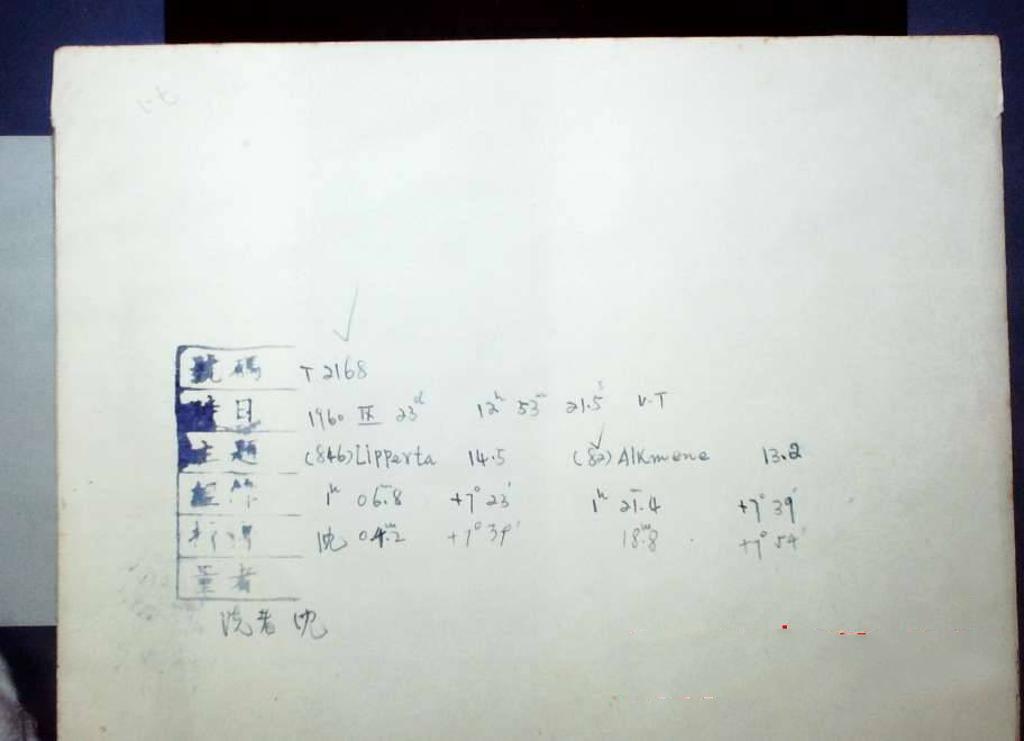 號碼 T 2168
時日 1960 IX 23d 12h 53m 21.5s U.T
主題 (846) Lipperta 14.5 (82) Alkmene 13.2
1h 06m.8 +7° 23' 1h 21m.4 +7° 39'
沈 04m.2 +7° 39' 18m.8 +7° 54'
量者
沈